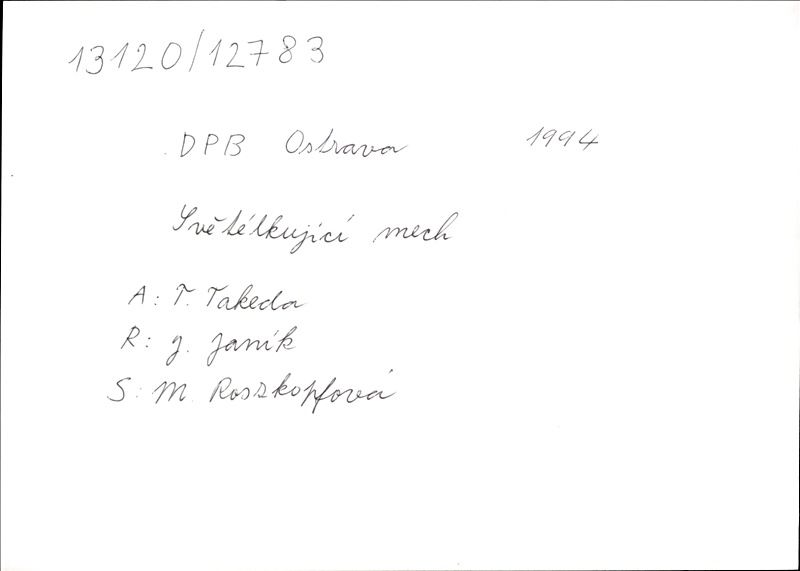 13120/12783
DPB Ostrava 1994
Světélkující mech
A: T. Takeda
R: J. Janík
S: M. Roszkopfová